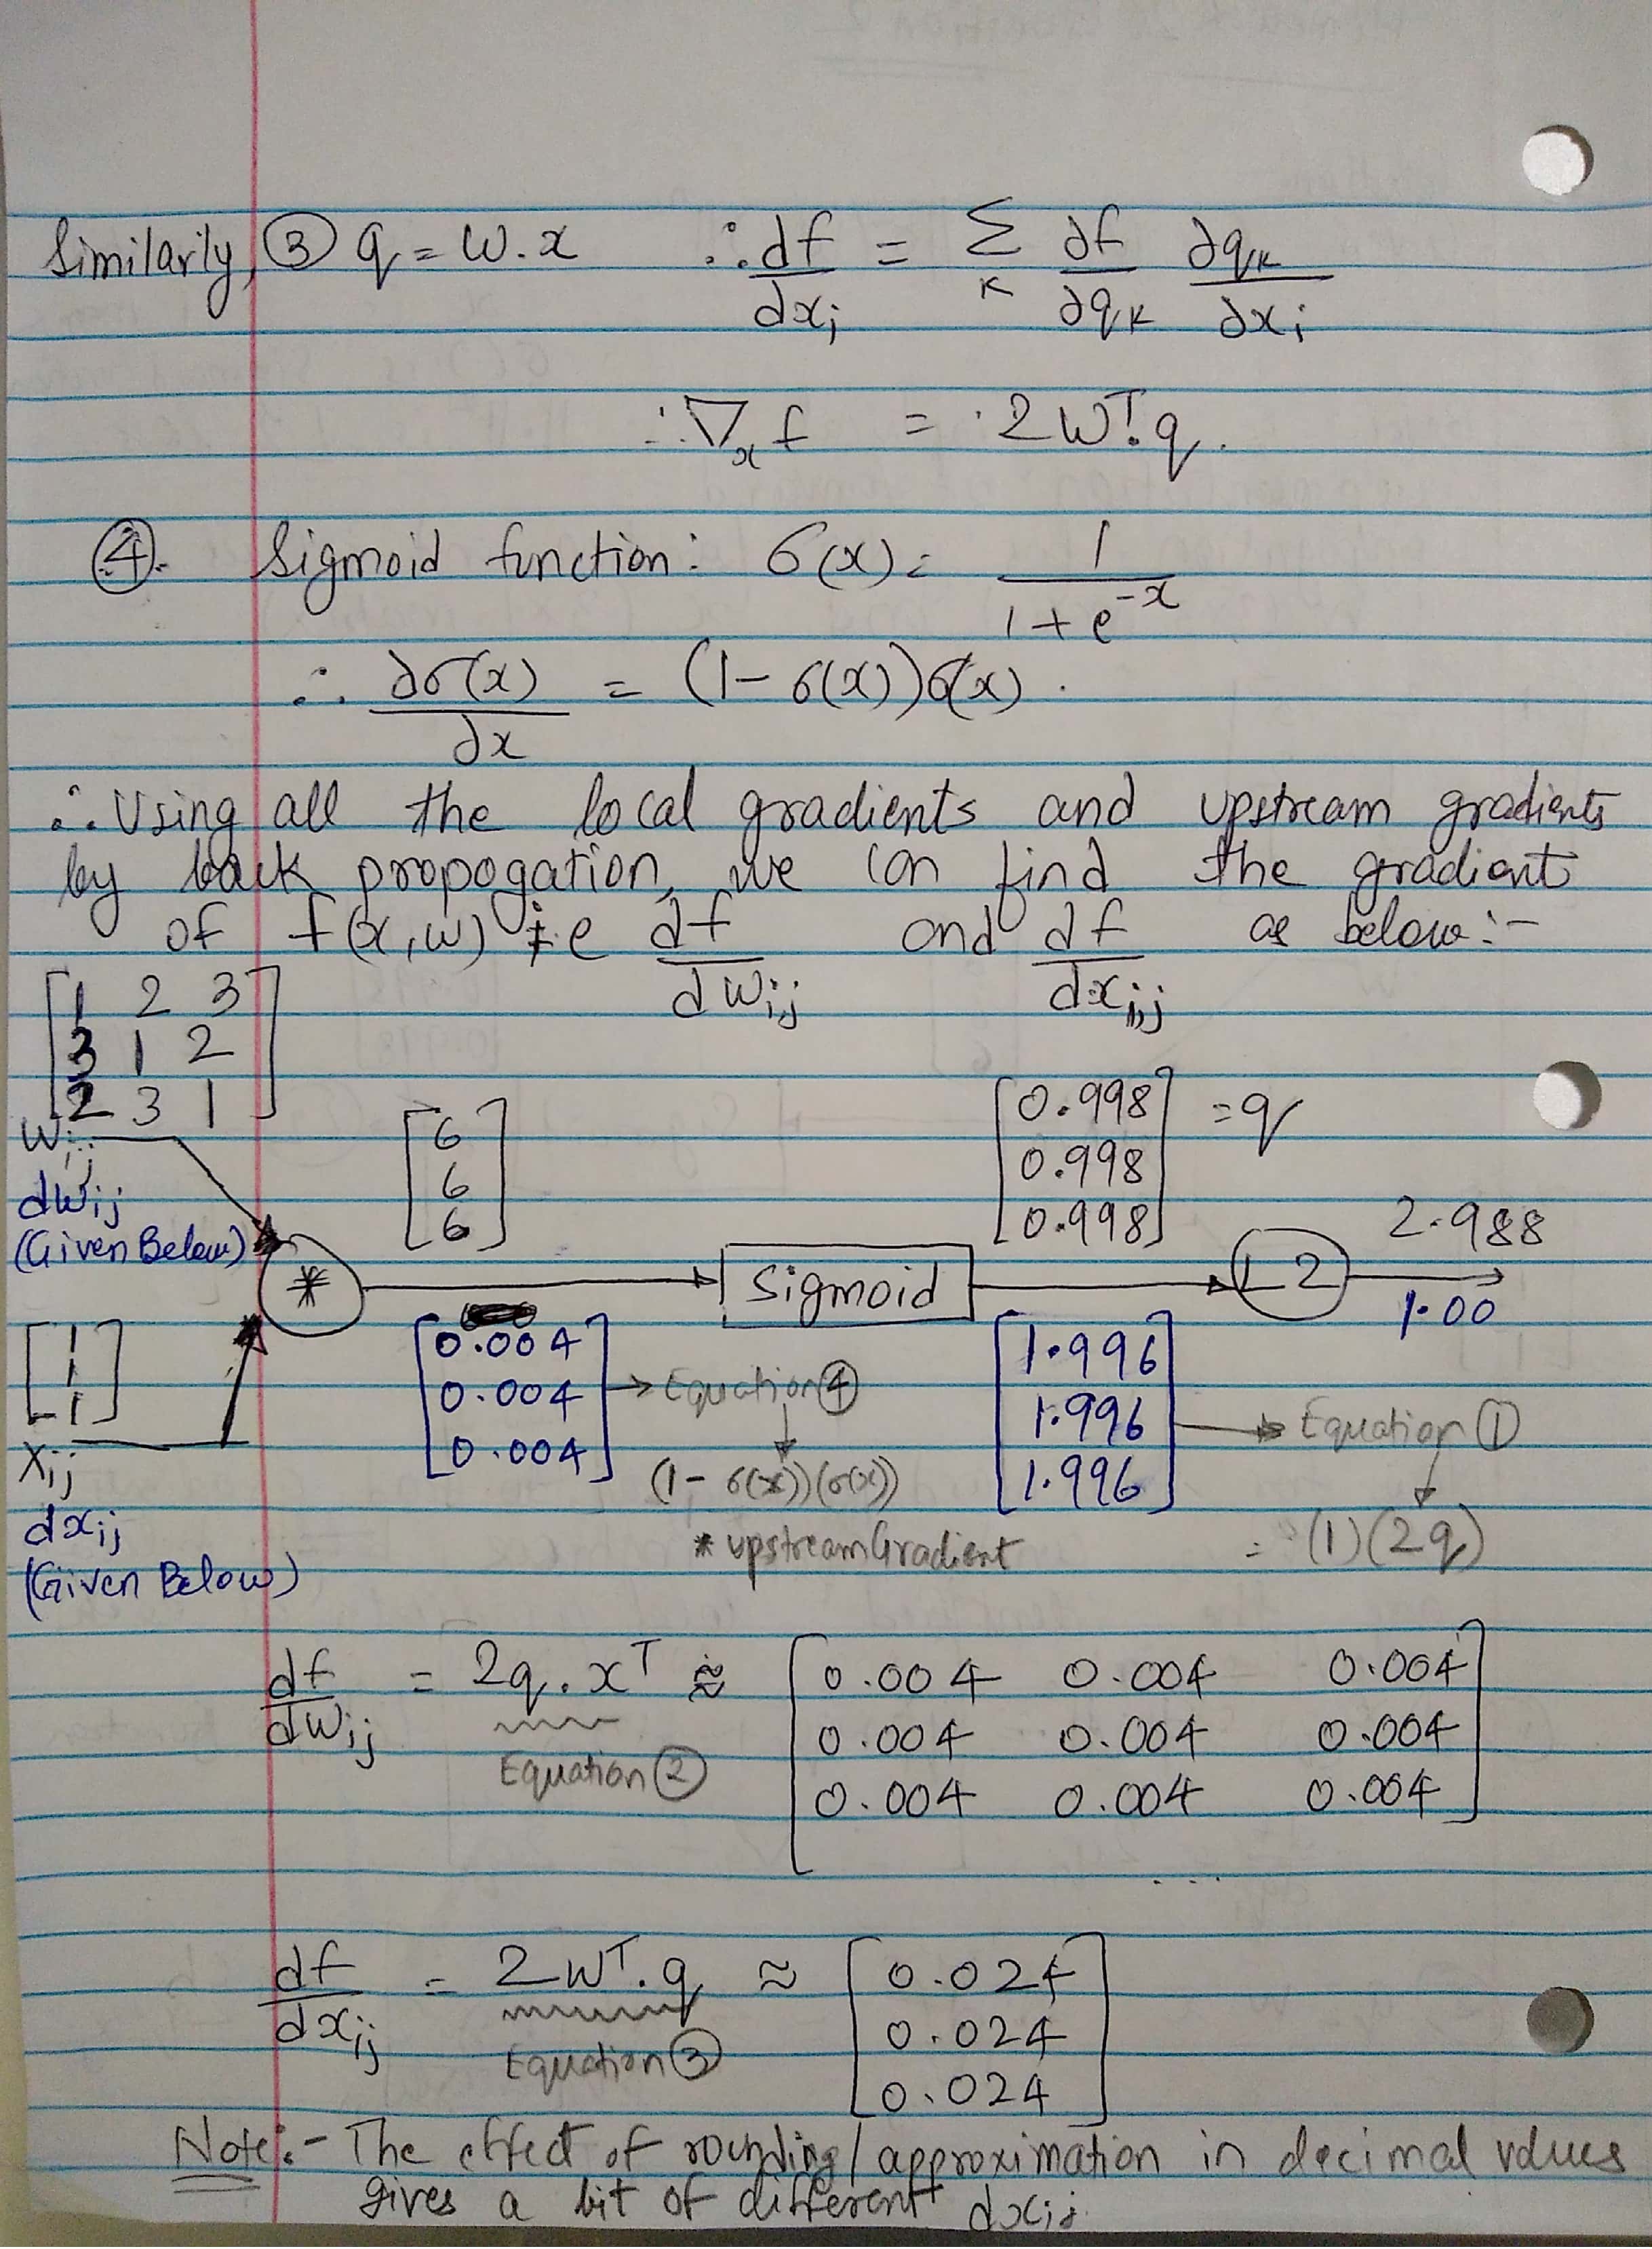 Similarily, ③ q = W.x ∴ df/dxi = Σk ∂f/∂qk ∂qk/∂xi
∴ ∇x f = 2Wᵀ.q.
④. Sigmoid function: σ(x) = 1/(1+e^-x)
∴ ∂σ(x)/∂x = (1-σ(x))σ(x).
∴ Using all the local gradients and upstream gradients
by back propogation, we can find the gradient
of f(x,w) i.e df/dwij and df/dxi,j as below:-
[1 2 3
3 1 2
2 3 1]
Wi,j
dwij
(Given Below)
[6
6
6]
[0.998
0.998
0.998] = q
*
Sigmoid
L2
2.988
1.00
[1
1
1]
Xij
dxij
(Given Below)
[0.004
0.004
0.004]
→ Equation ④
(1-σ(x))(σ(x))
* upstreamGradient
[1.996
1.996
1.996]
→ Equation ①
= (1)(2q)
df/dwij = 2q.xᵀ ≈ [0.004 0.004 0.004
0.004 0.004 0.004
0.004 0.004 0.004]
Equation ②
df/dxij = 2Wᵀ.q ≈ [0.024
0.024
0.024]
Equation ③
Note:- The effect of rounding/approximation in decimal values
gives a bit of different dxij